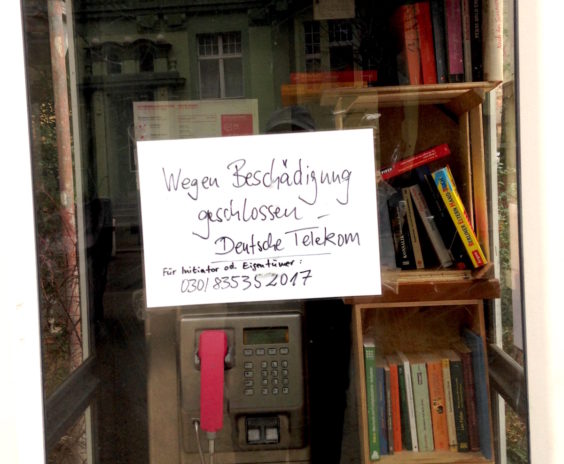 Wegen Beschädigung
geschlossen –
Deutsche Telekom
Für Initiator od. Eigentümer:
030/83535 2017